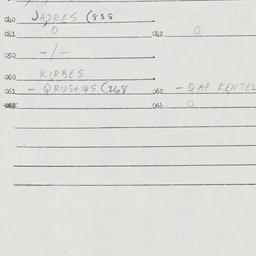 040 JADRES (838
041 0 042 0
050 -/-
060 KIRBES
061 - QRUS+145 (268 062 - QAP KENTEL
063 064 0